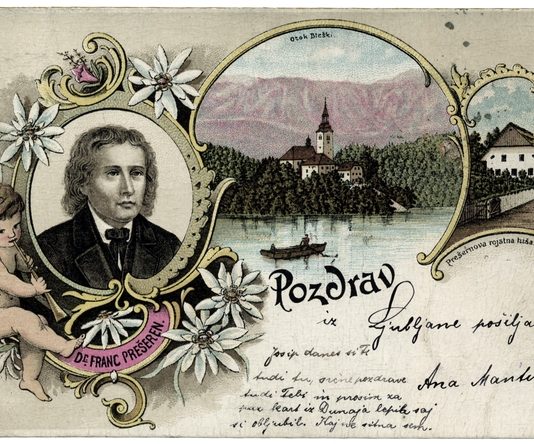 Otok Bleški.
Prešernova rojstna hiša
DR. FRANC PREŠEREN.
Pozdrav
iz Ljubljane pošilja
Ana
Josip danes si Ti
tudi tu, srčne pozdrave
tudi Tebi in prosim za
par kart iz Dunaja lepile saj
si obljubil. Kaj ne sitna sem.